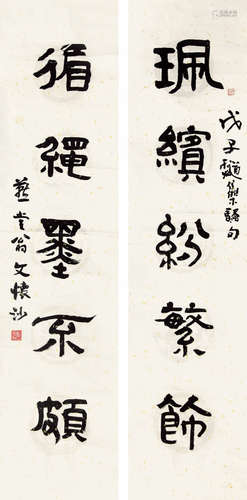 珮繽紛繁飾
戊子騷集語句
循繩墨不頗
燕堂翁文懷沙